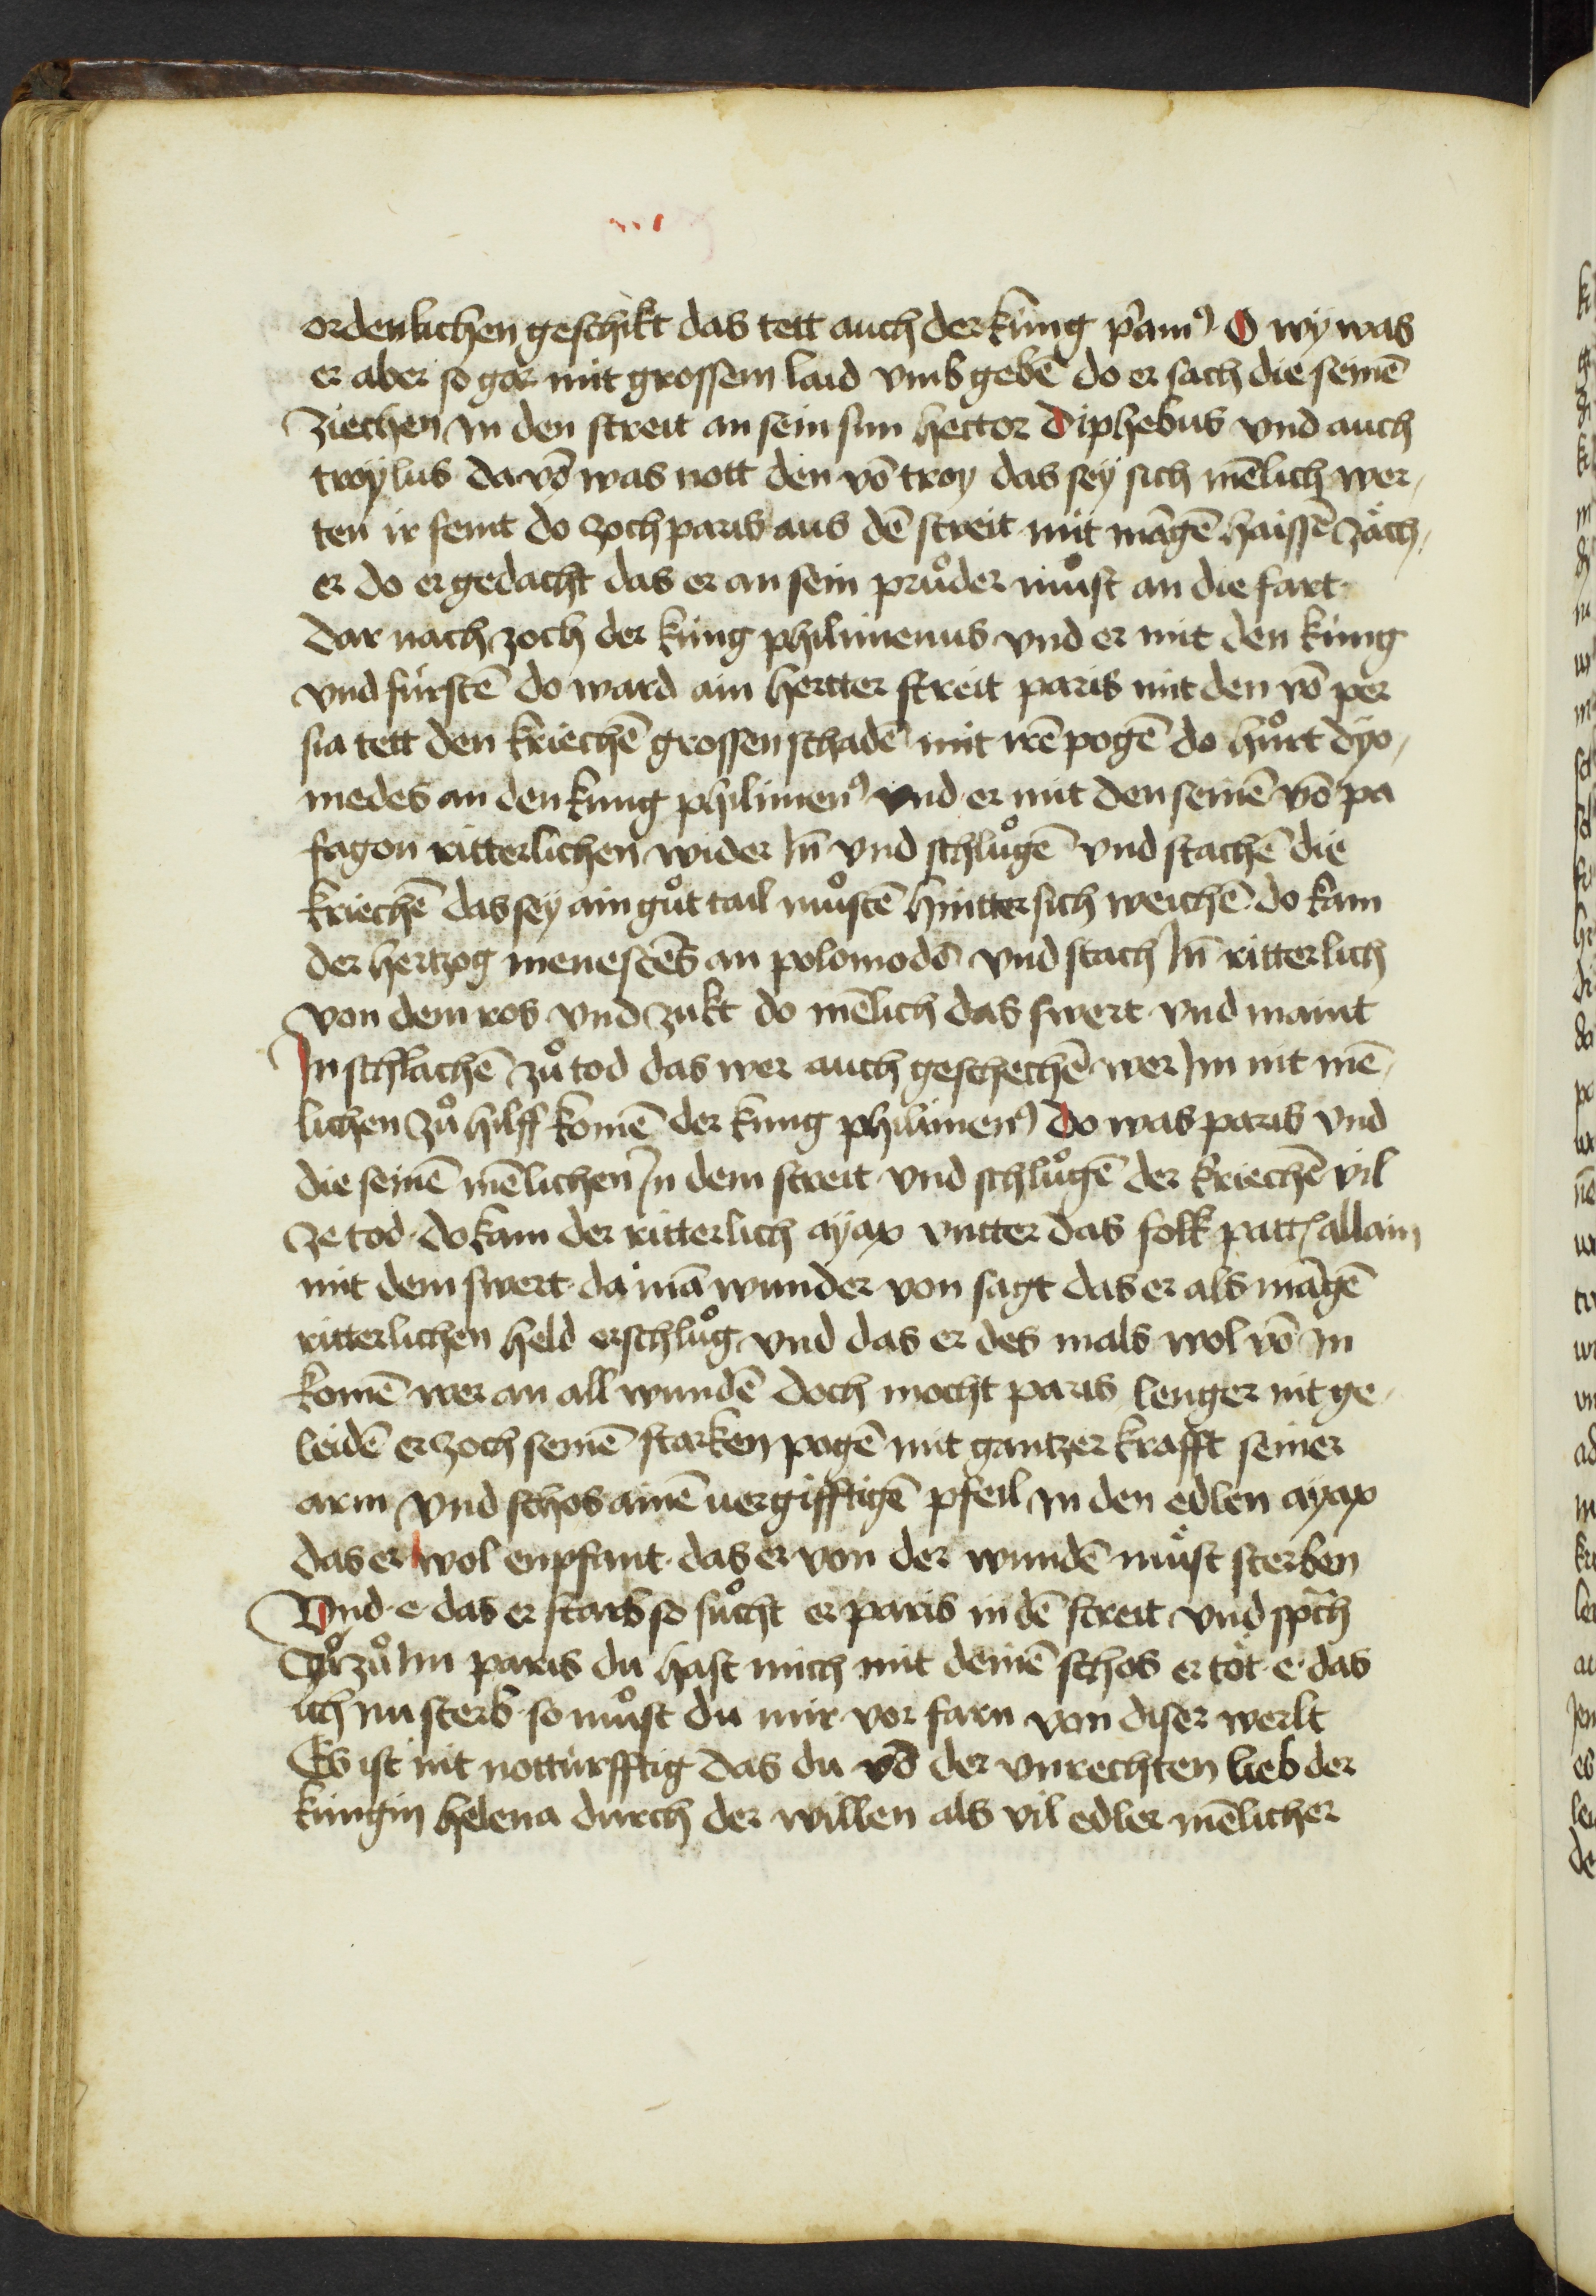 ordenlichen geschikt das tett auch der kung p̾am⁹ O wy was
er aber so gar mit grossem laid vmbgebē do er sach die seinē
ziechen in den streit an sein sun hector Diphebus vnd auch
troylus da vō was nott den vō troy das sey sich mēlich wer/
ten ir feint do zoch paris aus dē streit mit māgē haissē zäch/
er do er gedacht das er an sein pruͦder muͦst an die fart
dar nach zoch der kung philimenus vnd er mit den kung
vnd furstē do ward ain hertter streit paris mit den vō per
sia tett den kriechē grossen schadē mit irē pogē do huͦrt dyo/
medes an den kung philimen⁹ vnd er mit den seinē vō pa
fagon ritterlichen wider In̄ vnd schluͦgē vnd stachē die
kriechē das sey ain guͦt tail muͦstē hintter sich weichē do kam
der hertzog menestēs an polomodō vnd stach In̄ ritterlich
von dem ros vnd zukt do mēlich das swert vnd maint
In schlachē zuͦ tod das wer auch geschechē wer Im nit mē/
lichen zuͦ hilff komē der kung philimen⁹ do was paris vnd
die seinē mēlichen In dem streit vnd schluͦgē der kriechē vil
ze tod do kam der ritterlich ayax vntter das folk patt allain
mit dem swert da mā wunder von sagt das er als māgē
ritterlichen held erschluͦg vnd das er des mals wol vō in
komē wer an all wundē doch mocht paris lenger nit ge/
leidē er zoch seinē starken pogē mit gantzer krafft seiner
arm vnd schos ainē uergifftigē pfeil in den edlen ayax
das er wol enpfant das er von der wundē muͦst sterben
Vnd e das er starb so suͦcht er paris in dē streit vnd sp̄ch
zuͦ Im paris du hast mich mit deinē schos er töt e das
ich nu sterb so muͦst du mir vor farn von diser werlt
Es ist nit notturfftig das du vō der vnrechten lieb der
kungin helena durch der willen als vil edler mēlicher